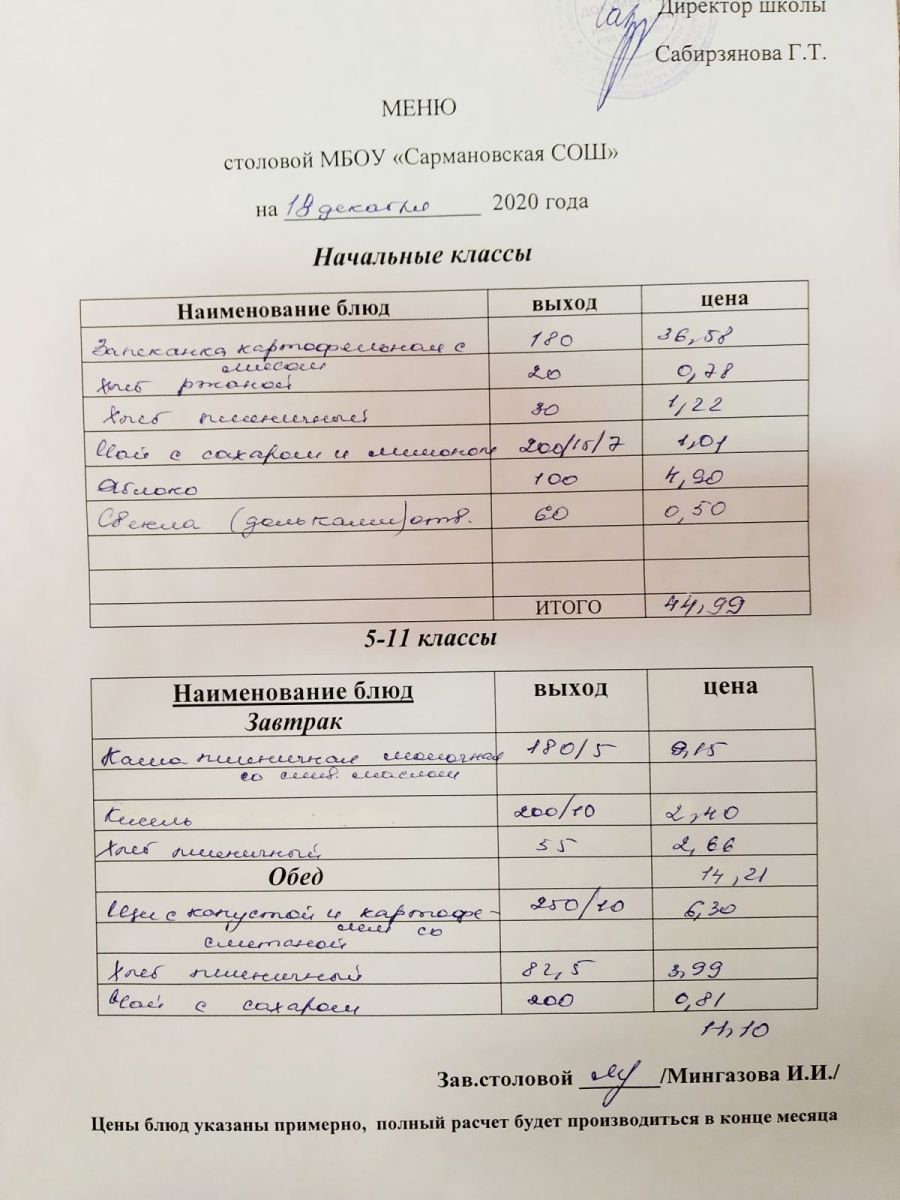 Директор школы
Сабирзянова Г.Т.
МЕНЮ
столовой МБОУ «Сармановская СОШ»
на 18 декабря 2020 года
Начальные классы
Наименование блюд выход цена
Запеканка картофельная с 180 36,58
мясом
Хлеб ржаной 20 0,78
Хлеб пшеничный 30 1,22
Чай с сахаром и лимоном 200/15/7 1,01
Яблоко 100 4,90
Свекла (дольками) отв. 60 0,50
ИТОГО 44,99
5-11 классы
Наименование блюд выход цена
Завтрак
Каша пшеничная молочная 180/5 9,15
со слив. маслом
Кисель 200/10 2,40
Хлеб пшеничный 55 2,66
Обед 14,21
Щи с капустой и картофе- 250/10 6,30
лем со
сметаной
Хлеб пшеничный 82,5 3,99
Чай с сахаром 200 0,81
11,10
Зав.столовой /Мингазова И.И./
Цены блюд указаны примерно, полный расчет будет производиться в конце месяца